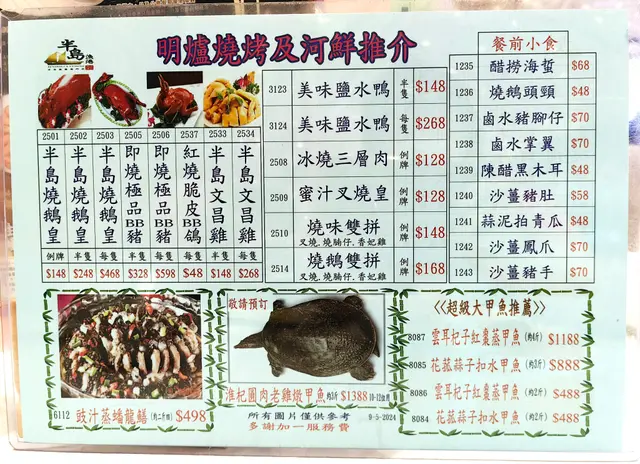 半島
漁港
明爐燒烤及河鮮推介
2501 2502 2503 2505 2506 2537 2533 2534
半島燒鵝皇
即燒極品BB豬
紅燒脆皮BB鴿
半島文昌雞
半島文昌雞
例牌 半隻 每隻 半隻 每隻 每隻 半隻 每隻
$148 $248 $468 $328 $598 $48 $148 $268
3123 美味鹽水鴨 半隻 $148
3124 美味鹽水鴨 每隻 $268
2508 冰燒三層肉 例牌 $128
2509 蜜汁叉燒皇 例牌 $128
2510 燒味雙拼 例牌 $148
叉燒,燒腩仔,香妃雞
2514 燒鵝雙拼 例牌 $168
叉燒,燒腩仔,香妃雞
餐前小食
1235 醋撈海蜇 $68
1236 燒鵝頭頸 $48
1237 鹵水豬腳仔 $70
1238 鹵水掌翼 $70
1239 陳醋黑木耳 $48
1240 沙薑豬肚 $58
1241 蒜泥拍青瓜 $48
1242 沙薑鳳爪 $70
1243 沙薑豬手 $70
6112 豉汁蒸蟠龍鱔 (約二斤頭) $498
敬請預訂
淮杞圓肉老雞燉甲魚 約3斤 $1388 10-12位用
所有圖片僅供參考
多謝加一服務費
9-5-2024
<<超級大甲魚推薦>>
8087 雲耳杞子紅棗蒸甲魚 (約4斤) $1188
8085 花菰蒜子扣水甲魚 (約3斤) $888
8086 雲耳杞子紅棗蒸甲魚 (約2斤) $488
8084 花菰蒜子扣水甲魚 (約2斤) $488